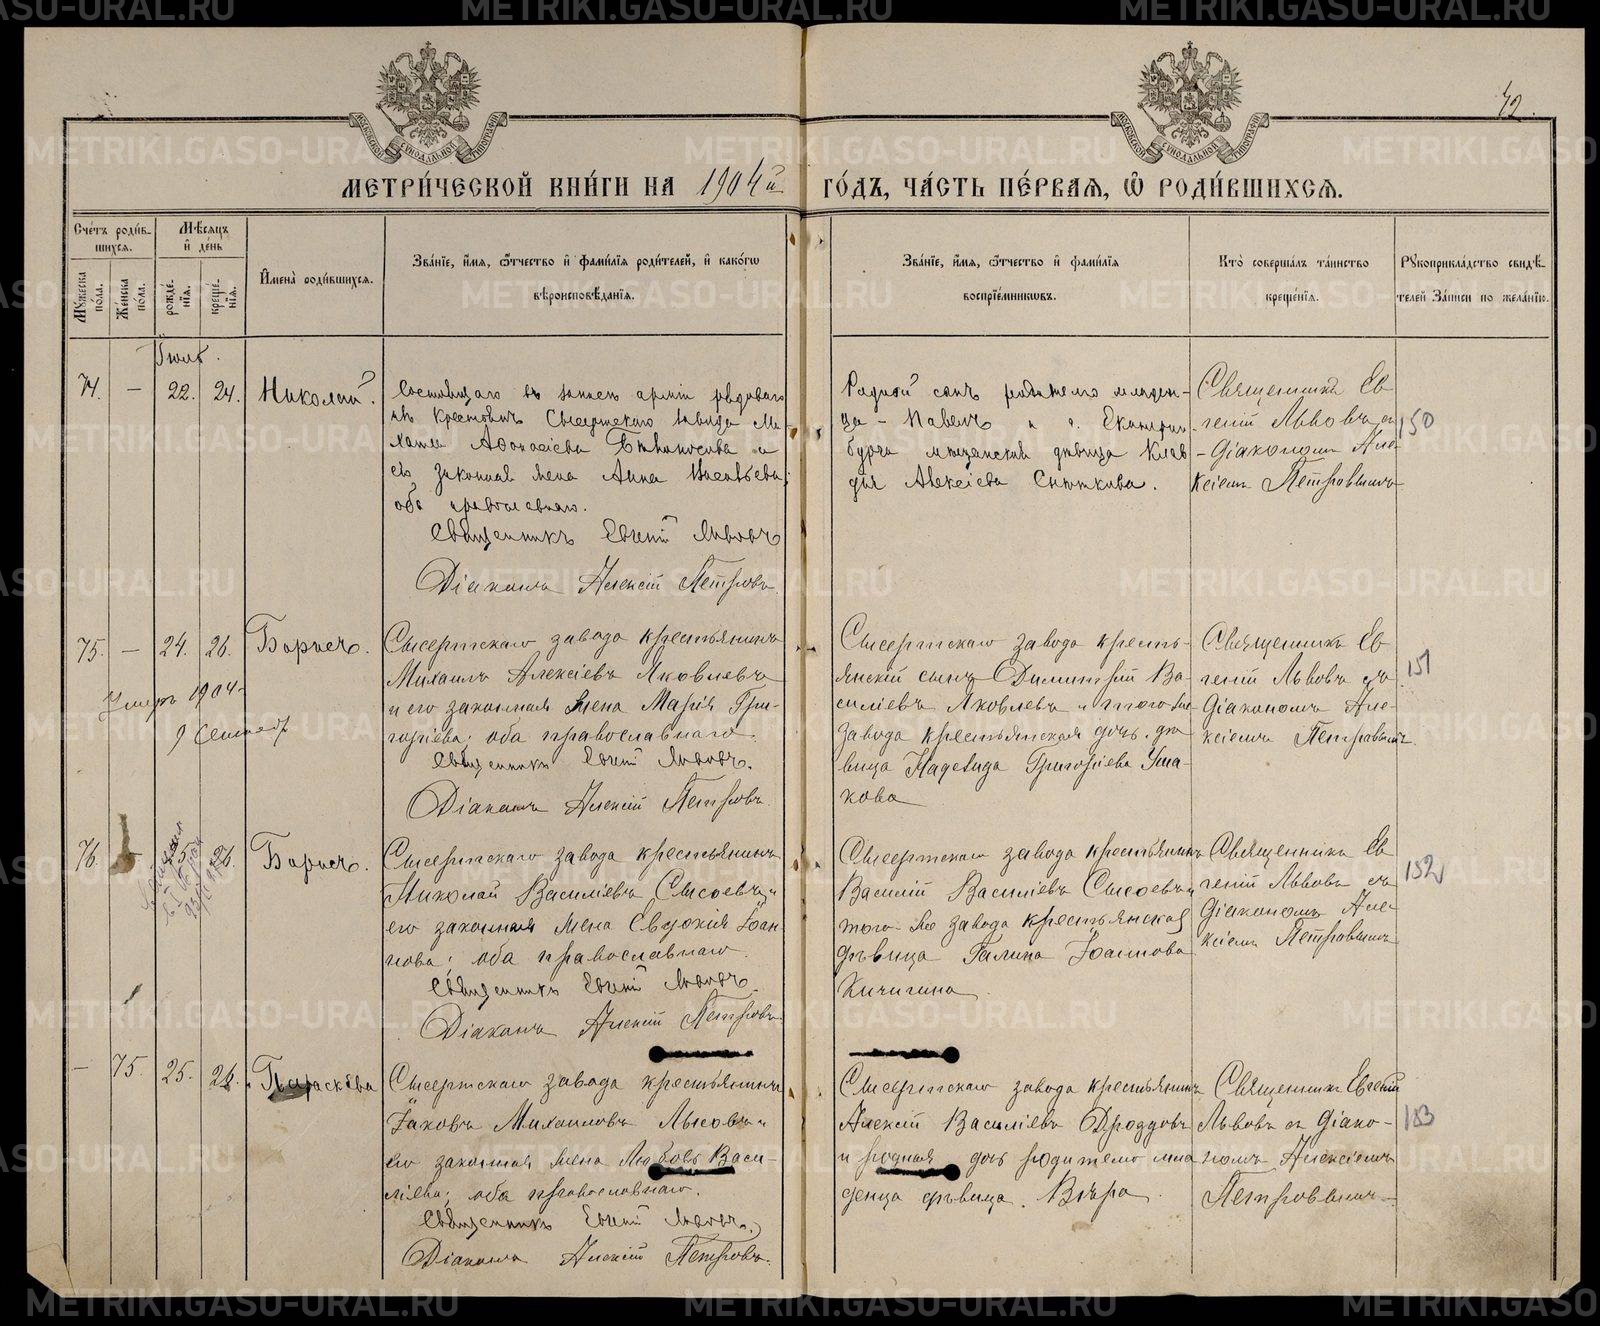 42.
МЕТРИ́ЧЕСКОЙ КНИ́ГИ НА 1904й ГО́ДЪ, ЧА́СТЬ ПЕ́РВАЯ, Ѡ҆ РОДИ́ВШИХСѦ.
Сче́тъ роди́в-
шихсѧ.
Мꙋ́жеска по́ла.
Же́нска по́ла.
Мѣ́сѧцъ
и҆ де́нь
рожде́нїѧ.
креще́нїѧ.
И҆мена̀ роди́вшихсѧ.
Зва́нїе, и҆́мѧ, ѻ҆́тчество и҆ фами́лїѧ роди́телей, и҆ како́гѡ
вѣроисповѣ́данїѧ.
Зва́нїе, и҆́мѧ, ѻ҆́тчество и҆ фами́лїѧ
воспрїе́мникѡвъ.
Кто̀ соверша́лъ та́инство
креще́нїѧ.
Рꙋкоприкла́дство свидѣ́-
телей за́писи по жела́нїю.
Іюль.
74. — 22. 24. Николай.
Состоящаго въ запасѣ арміи рядоваго
Сысертскаго завода Ми-
хаила Аѳонасіева и
его законная жена Анна
оба православнаго.
Священникъ Евгеній Львовъ
Діаконъ Алексій Петровъ.
Родной сынъ родителей младен-
ца - Павелъ и г. Екатерин-
бурга мѣщанская дѣвица Клав-
дія Алексіева
Священникъ Ев
геній Львовъ съ
- діакономъ Але-
ксіемъ Петровымъ
150
75. — 24. 26. Борисъ.
Умеръ 1904
9 Сентябр
Сысертскаго завода крестьянинъ
Михаилъ Алексіевъ Яковлевъ
и его законная жена Марія Гри-
горіева; оба православнаго.
Священникъ Евгеній Львовъ.
Діаконъ Алексій Петровъ
Сысертскаго завода кресть-
янскій сынъ Димитрій Ва-
силіевъ Яковлевъ и того же
завода крестьянская дочь дѣ
вица Надежда Григоріева Уша-
кова
Священникъ Ев
геній Львовъ съ
діакономъ Але-
ксіемъ Петровымъ.
151
76. — 26. Борисъ.
Сысертскаго завода крестьянинъ
Николай Василіевъ Сысоевъ и
его законная жена Евдокія Іоан-
нова; оба православнаго.
Священникъ Евгеній Львовъ.
Діаконъ Алексій Петровъ.
Сысертскаго завода крестьянинъ
Василій Василіевъ Сысоевъ и
того-же завода крестьянская
дѣвица Галина Іоаннова
Кичигина
Священникъ Ев
геній Львовъ съ
діакономъ Але-
ксіемъ Петровымъ
152
— 75. 25. 26. Параскева
Сысертскаго завода крестьянинъ
Іаковъ Михаиловъ Лысовъ и
его законная жена Любовь Васи-
ліева; оба православнаго.
Священникъ Евгеній Львовъ.
Діаконъ Алексій Петровъ.
Сысертскаго завода крестьянинъ
Алексій Василіевъ Дроздовъ
и родная дочь родителей мла
денца дѣвица Вѣра.
Священникъ Евгеній
Львовъ съ діако-
номъ Алексіемъ
Петровымъ.
153